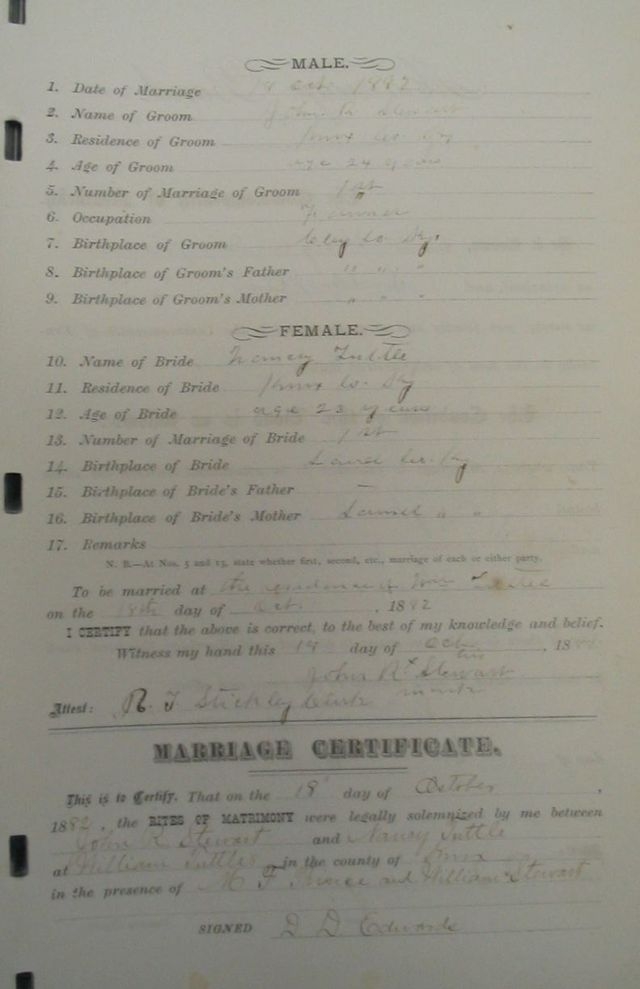 MALE.
1. Date of Marriage 18 Oct. 1882
2. Name of Groom John R Stewart
3. Residence of Groom Knox Co. Ky
4. Age of Groom age 24 years
5. Number of Marriage of Groom 1st
6. Occupation Farmer
7. Birthplace of Groom Clay Co Ky.
8. Birthplace of Groom's Father " " "
9. Birthplace of Groom's Mother " " "
FEMALE.
10. Name of Bride Nancy Tuttle
11. Residence of Bride Knox Co. Ky
12. Age of Bride age 23 years
13. Number of Marriage of Bride 1st
14. Birthplace of Bride Laurel Co. Ky
15. Birthplace of Bride's Father —
16. Birthplace of Bride's Mother Laurel " "
17. Remarks
N. B.—At Nos. 5 and 13, state whether first, second, etc., marriage of each or either party.
To be married at the residence of Wm Tuttle
on the 18th day of Oct. , 1882
I CERTIFY that the above is correct, to the best of my knowledge and belief.
Witness my hand this day of Oct , 188
his
John R x Stewart
mark
Attest: R. T Stickley Clerk
MARRIAGE CERTIFICATE.
This is to Certify, That on the 18 day of October ,
1882, the RITES OF MATRIMONY were legally solemnized by me between
John R. Stewart and Nancy Tuttle
at William Tuttles in the county of Knox
in the presence of M F Prince and William Stewart
SIGNED D. D. Edwards